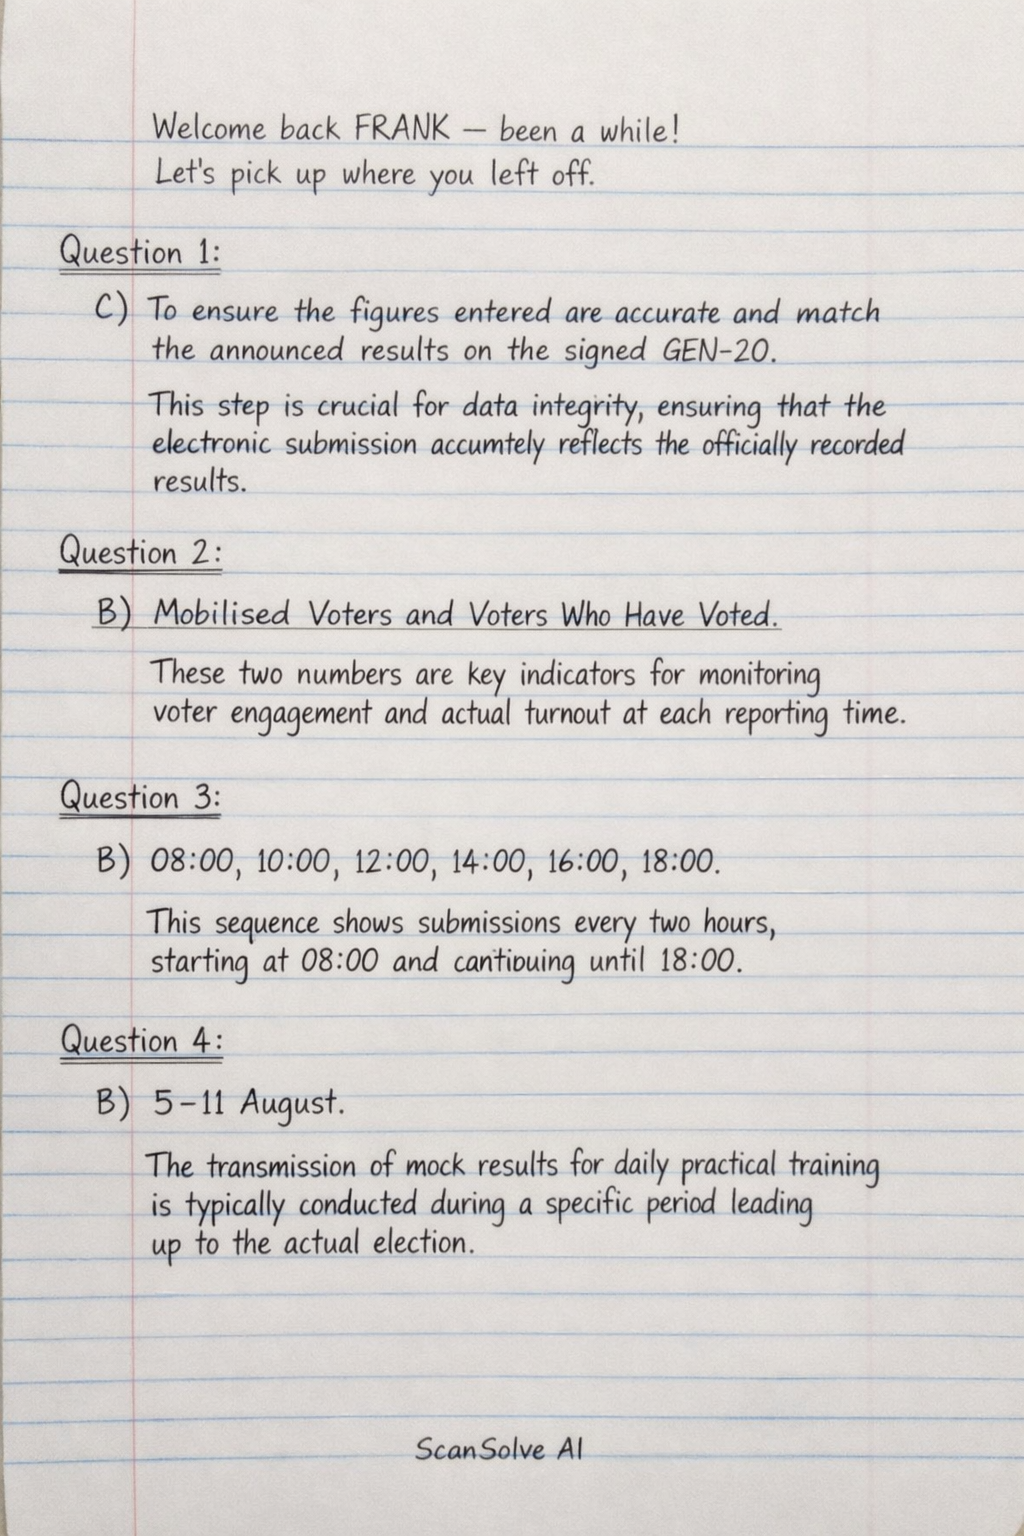 Welcome back FRANK — been a while!
Let's pick up where you left off.
Question 1:
C) To ensure the figures entered are accurate and match
the announced results on the signed GEN-20.
This step is crucial for data integrity, ensuring that the
electronic submission accumtely reflects the officially recorded
results.
Question 2:
B) Mobilised Voters and Voters Who Have Voted.
These two numbers are key indicators for monitoring
voter engagement and actual turnout at each reporting time.
Question 3:
B) 08:00, 10:00, 12:00, 14:00, 16:00, 18:00.
This sequence shows submissions every two hours,
starting at 08:00 and cantibuing until 18:00.
Question 4:
B) 5–11 August.
The transmission of mock results for daily practical training
is typically conducted during a specific period leading
up to the actual election.
ScanSolve AI